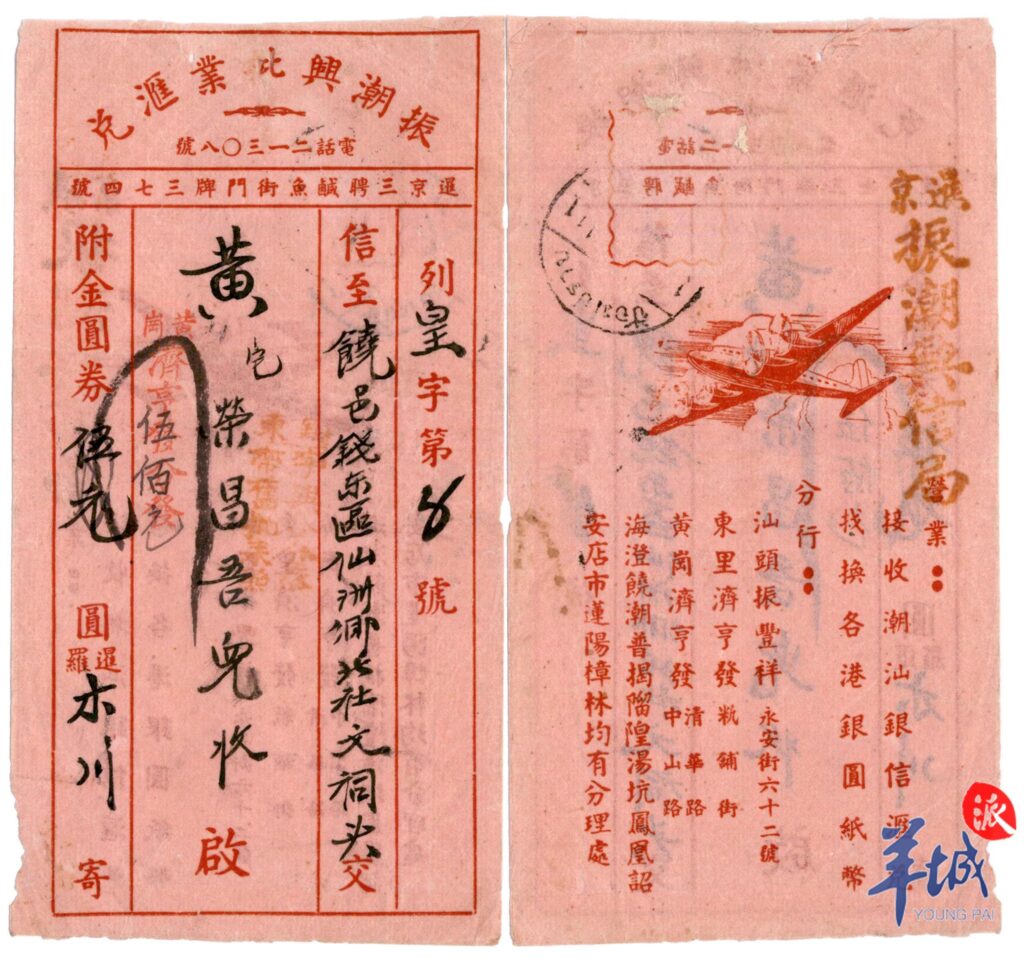 振潮興批業滙兌
電話二一三〇八號
暹京三聘鹹魚街門牌三七四號
列皇字第8號
信至饒邑錢东區仙洲鄉北社文祠头交
黃宅榮昌吾兒收
啟
附金圓券伍元圓
暹羅木川寄
伍佰元
暹京
振潮興信局
營業：
接收潮汕銀信滙
找換各港銀圓紙幣
分行：
汕頭振豐祥 永安街六十二號
東里濟亨發 籺舖街
黃崗濟亨發 清華路
中山路
海澄饒潮普揭𨻧隍湯坑鳳凰詔
安店市蓮陽樟林均有分理處
派
羊城
YOUNG PAI